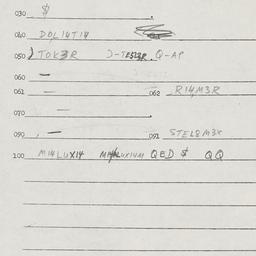 030 $
040 DOL14T14
050 TOK3R J-TESTER. Q-AP
060 —
061 — 062 R14M3R
070 —
090 — 091 STEL8M3X
100 M14LUX14 QED $ QQ